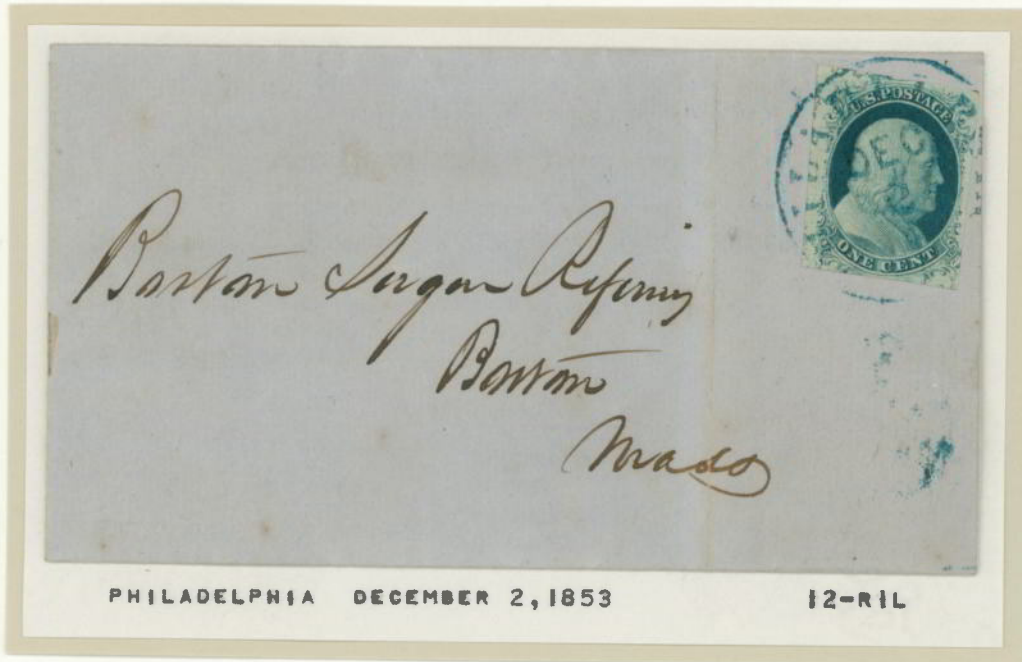 U.S. POSTAGE
DEC
ONE CENT
Boston Sugar Refinery
Boston
Mass
PHILADELPHIA DECEMBER 2, 1853 12-R1L